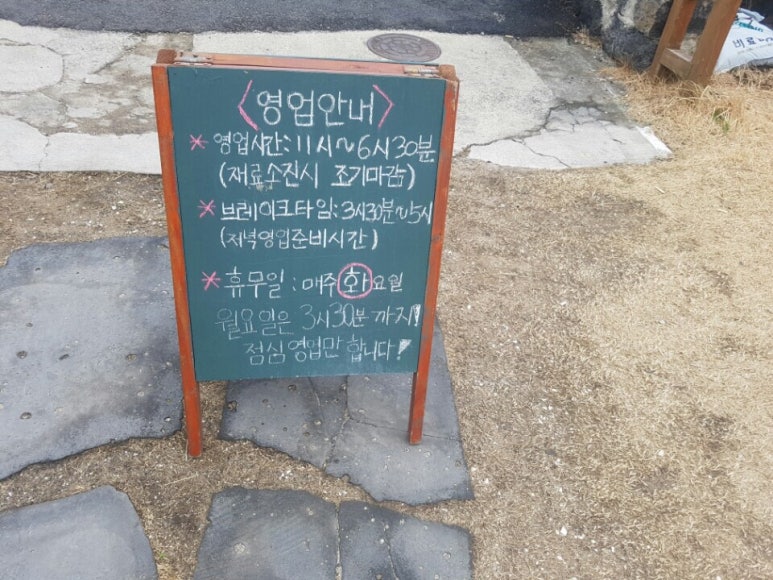 <영업안내>
* 영업시간:11시~6시30분
(재료소진시 조기마감)
* 브레이크타임:3시30분~5시
(저녁영업준비시간)
* 휴무일 : 매주 화요일
월요일은 3시30분 까지!
점심영업만 합니다!
비료